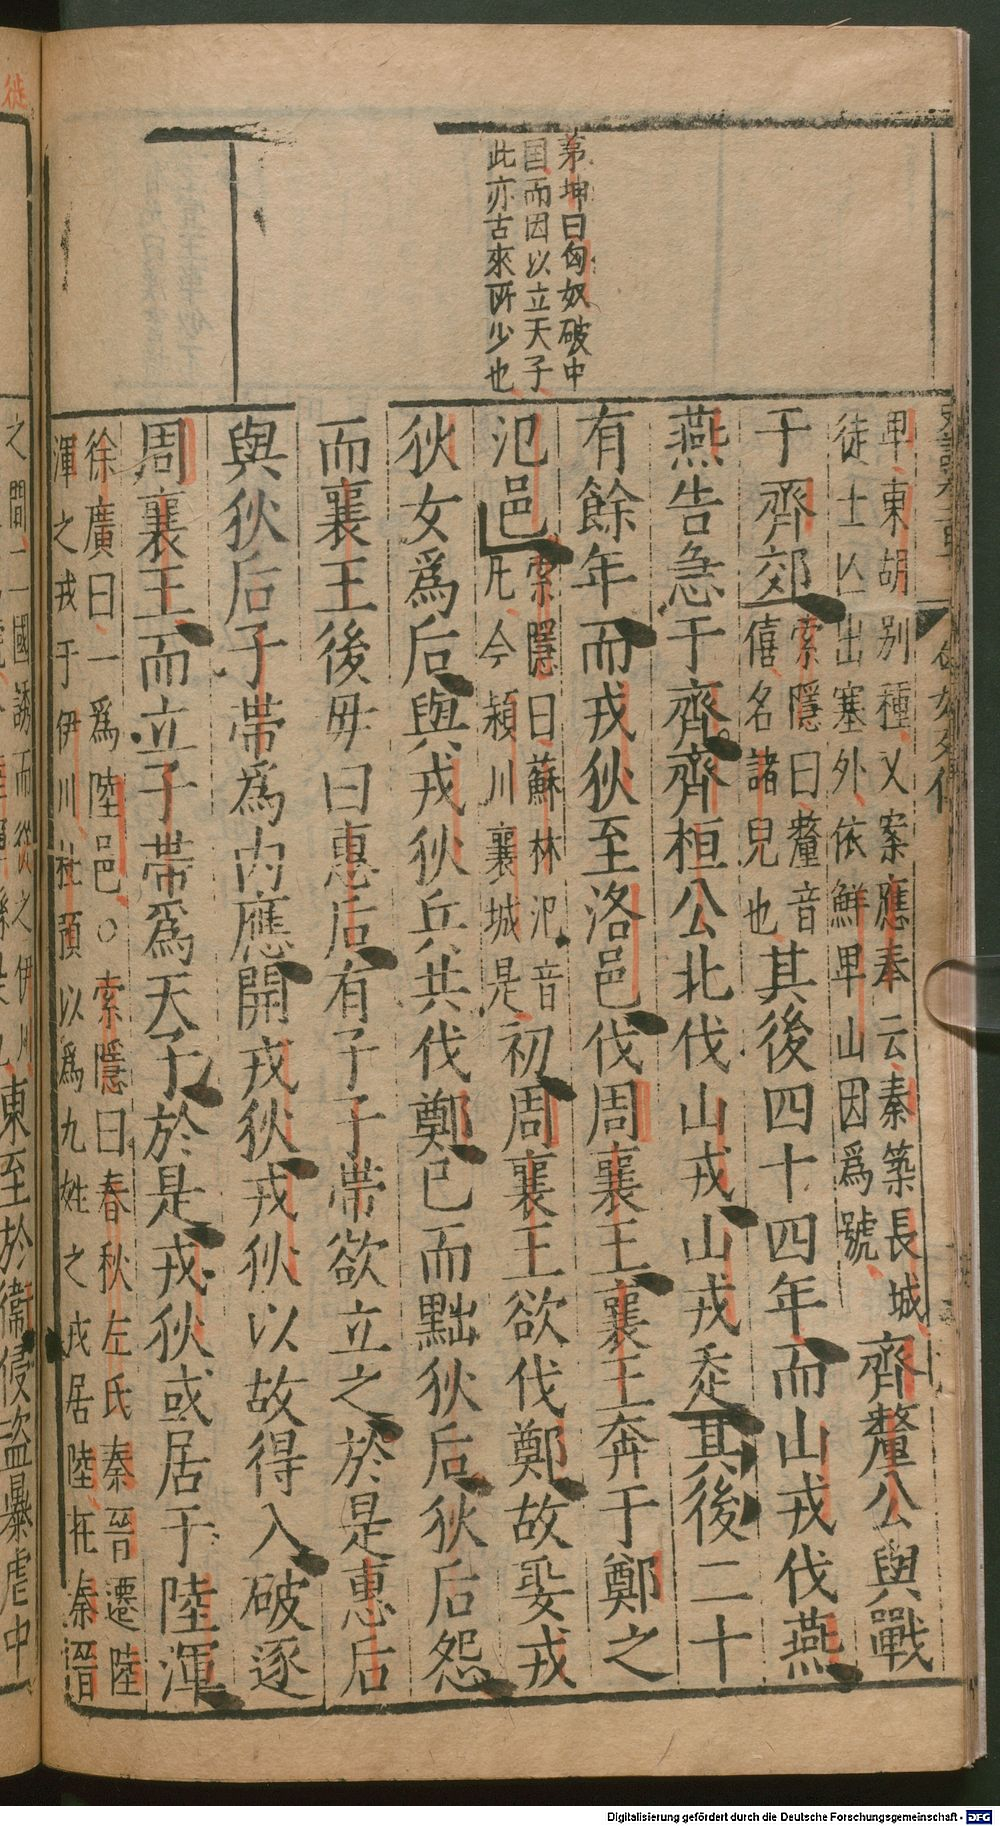 茅坤曰匈奴破中
国而因以立天子
此亦古來所少也
卑東胡别種又案應奉云秦築長城
徒士亾出塞外依鮮卑山因爲號
齊釐公與戰
于齊郊
索隱曰釐音
僖名諸兒也
其後四十四年而山戎伐燕
燕告急于齊齊桓公北伐山戎山戎走其後二十
有餘年而戎狄至洛邑伐周襄王襄王奔于鄭之
氾邑
索隱曰蘇林氾音
凡今潁川襄城是
初周襄王欲伐鄭故娶戎
狄女爲后與戎狄兵共伐鄭已而黜狄后狄后怨
而襄王後母曰惠后有子子帶欲立之於是惠后
與狄后子帶爲内應開戎狄戎狄以故得入破逐
周襄王而立子帶爲天子於是戎狄或居于陸渾
徐廣曰一爲陸邑○索隱曰春秋左氏秦晉遷陸
渾之戎于伊川杜預以爲允姓之戎居陸渾在秦晉
之間二國誘而從之伊川
東至於衞侵盜暴虐中
徙
Digitalisierung gefördert durch die Deutsche Forschungsgemeinschaft - DFG